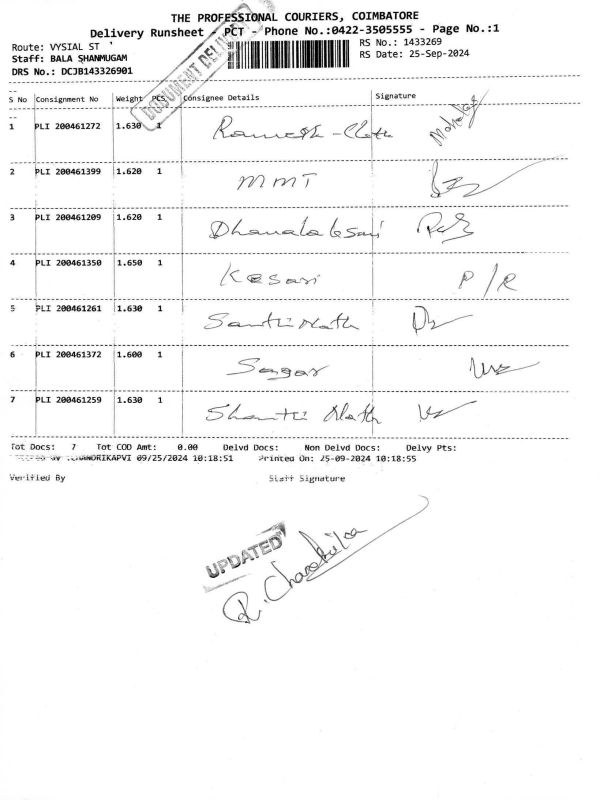 THE PROFESSIONAL COURIERS, COIMBATORE
Delivery Runsheet - PCT - Phone No.:0422-3505555 - Page No.:1
Route: VYSIAL ST
RS No.: 1433269
Staff: BALA SHANMUGAM
RS Date: 25-Sep-2024
DRS No.: DCJB143326901
DOCUMENT DELIVERY
S No Consignment No Weight PCS Consignee Details Signature
1 PLI 200461272 1.630 1 Ramesh - Cloth
2 PLI 200461399 1.620 1 MMT
3 PLI 200461209 1.620 1
4 PLI 200461350 1.650 1 Kesari P/R
5 PLI 200461261 1.630 1 Santhi Nath
6 PLI 200461372 1.600 1 Sagar
7 PLI 200461259 1.630 1 Shanti Nath
Tot Docs: 7 Tot COD Amt: 0.00 Delvd Docs: Non Delvd Docs: Delvy Pts:
09/25/2024 10:18:51 Printed On: 25-09-2024 10:18:55
Verified By Staff Signature
UPDATED